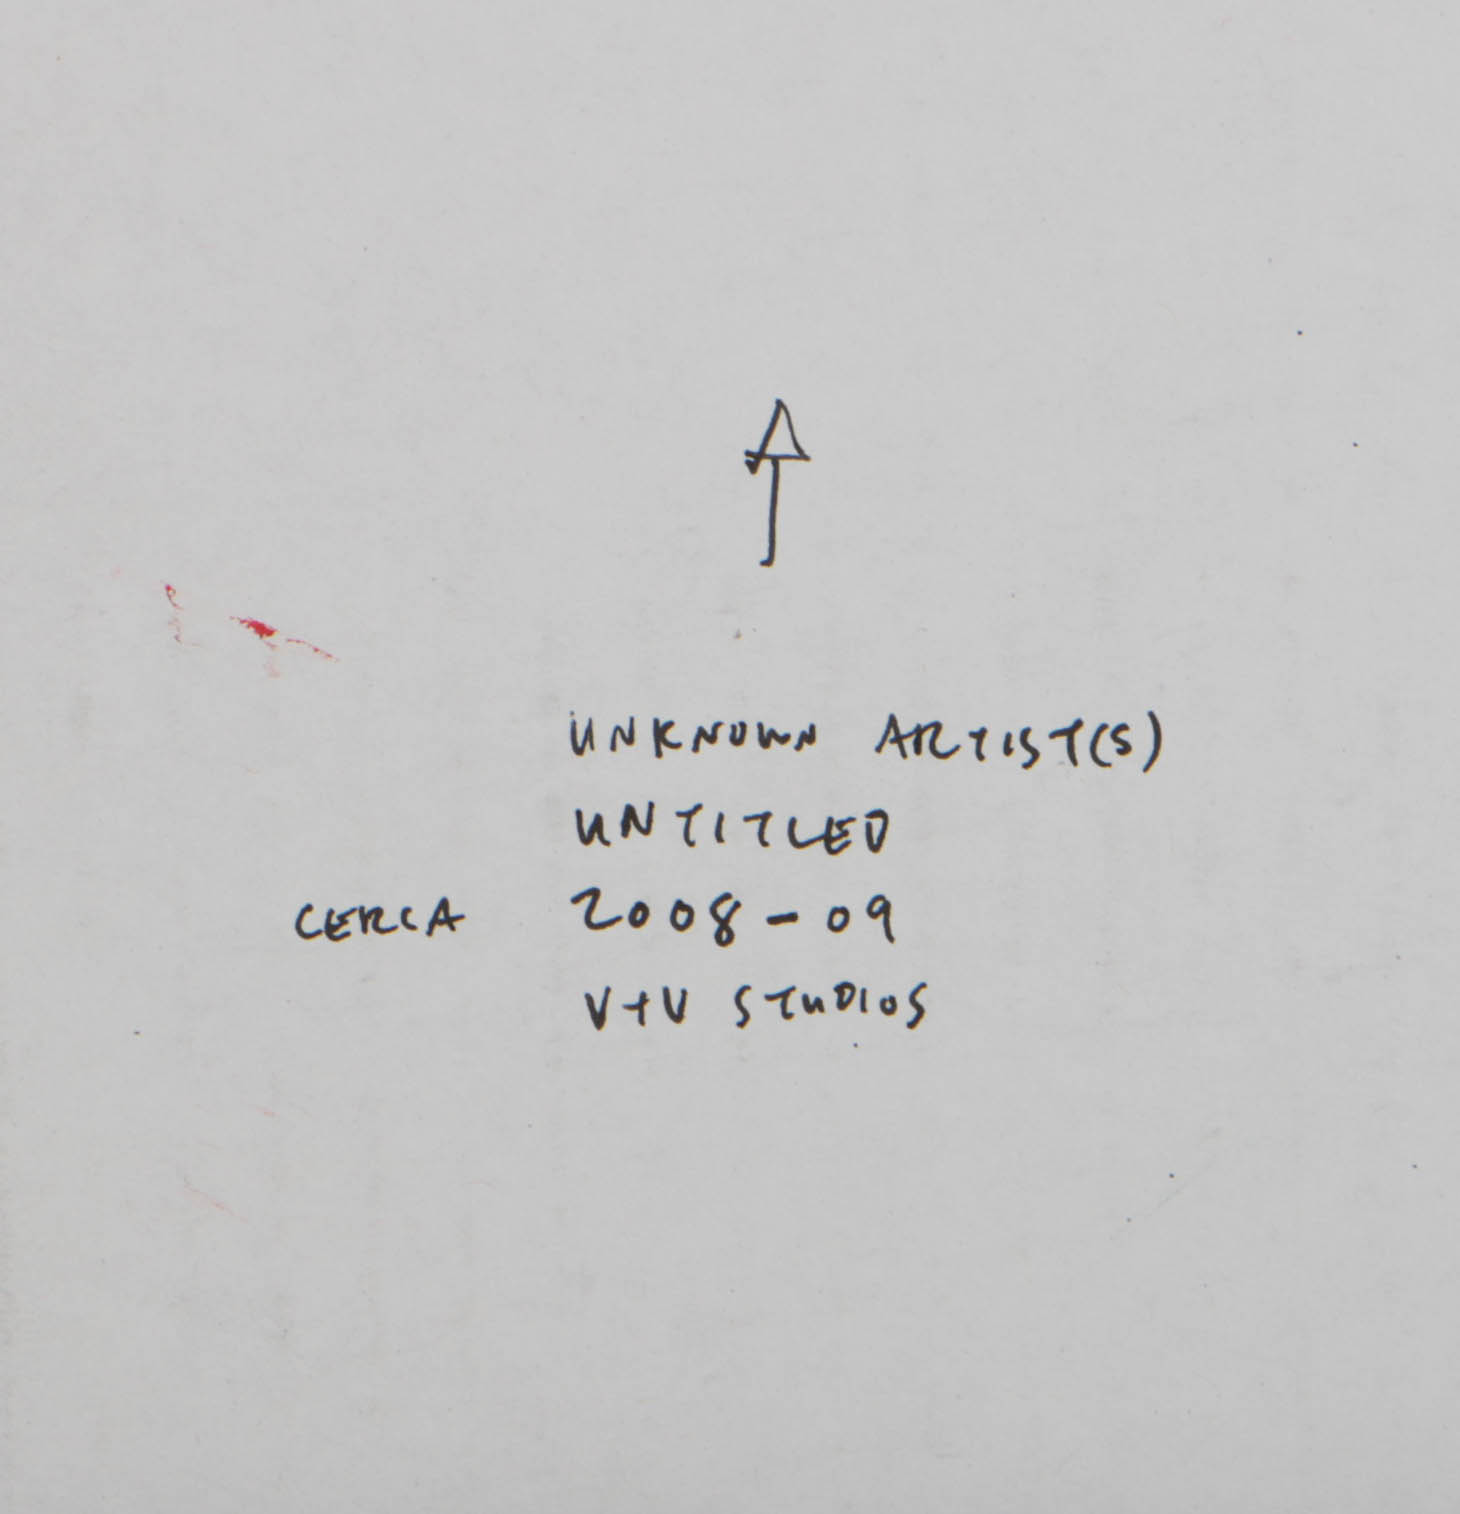 UNKNOWN ARTIST(S)
UNTITLED
CERCA 2008-09
V+V STUDIOS